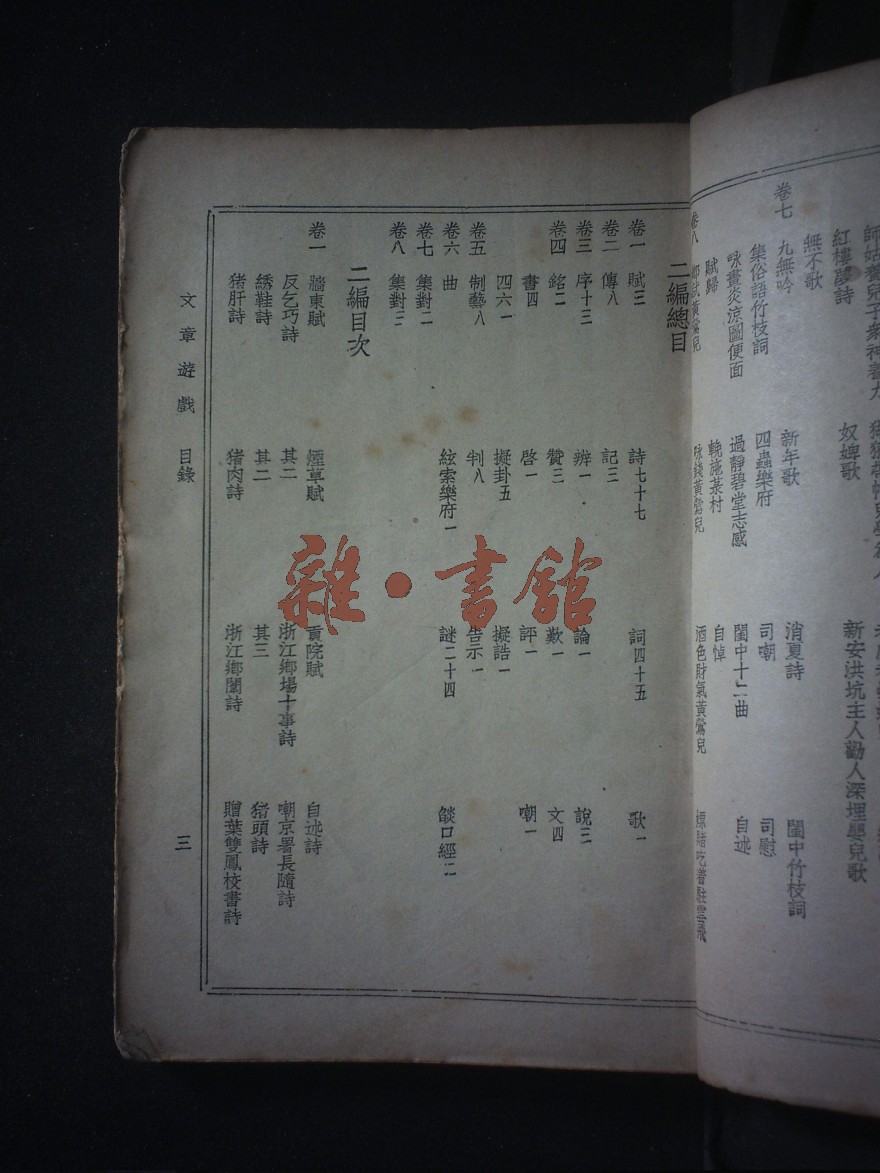 紅樓夢詩 奴婢歌 新安洪坑主人勸人深埋嬰兒歌
無不歌
卷七 九無吟 新年歌 消夏詩 閨中竹枝詞
集俗語竹枝詞 四蟲樂府 司嘲 司慰
咏畫炎涼圖便面 過靜碧堂志感 閨中十二曲 自述
賦歸 輓施某村 自悼
卷八 酒色財氣黃鶯兒
二編總目
卷一 賦三 詩七十七 詞四十五 歌一
卷二 傳八 記三
卷三 序十三 辨一 論一 說三
卷四 銘二 贊三 歎一 文四
書四 啓一 評一 嘲一
四六一 擬卦五 擬誥一
卷五 制藝八 判八 告示一
卷六 曲 絃索樂府一 謎二十四 燄口經二
卷七 集對二
卷八 集對三
二編目次
卷一 牆東賦 煙草賦 貢院賦 自述詩
反乞巧詩 其二 浙江鄉場十事詩 嘲京署長隨詩
綉鞋詩 其二 其三 猪頭詩
猪肝詩 猪肉詩 浙江鄉闈詩 贈葉雙鳳校書詩
文章遊戲 目錄 三
雜·書館